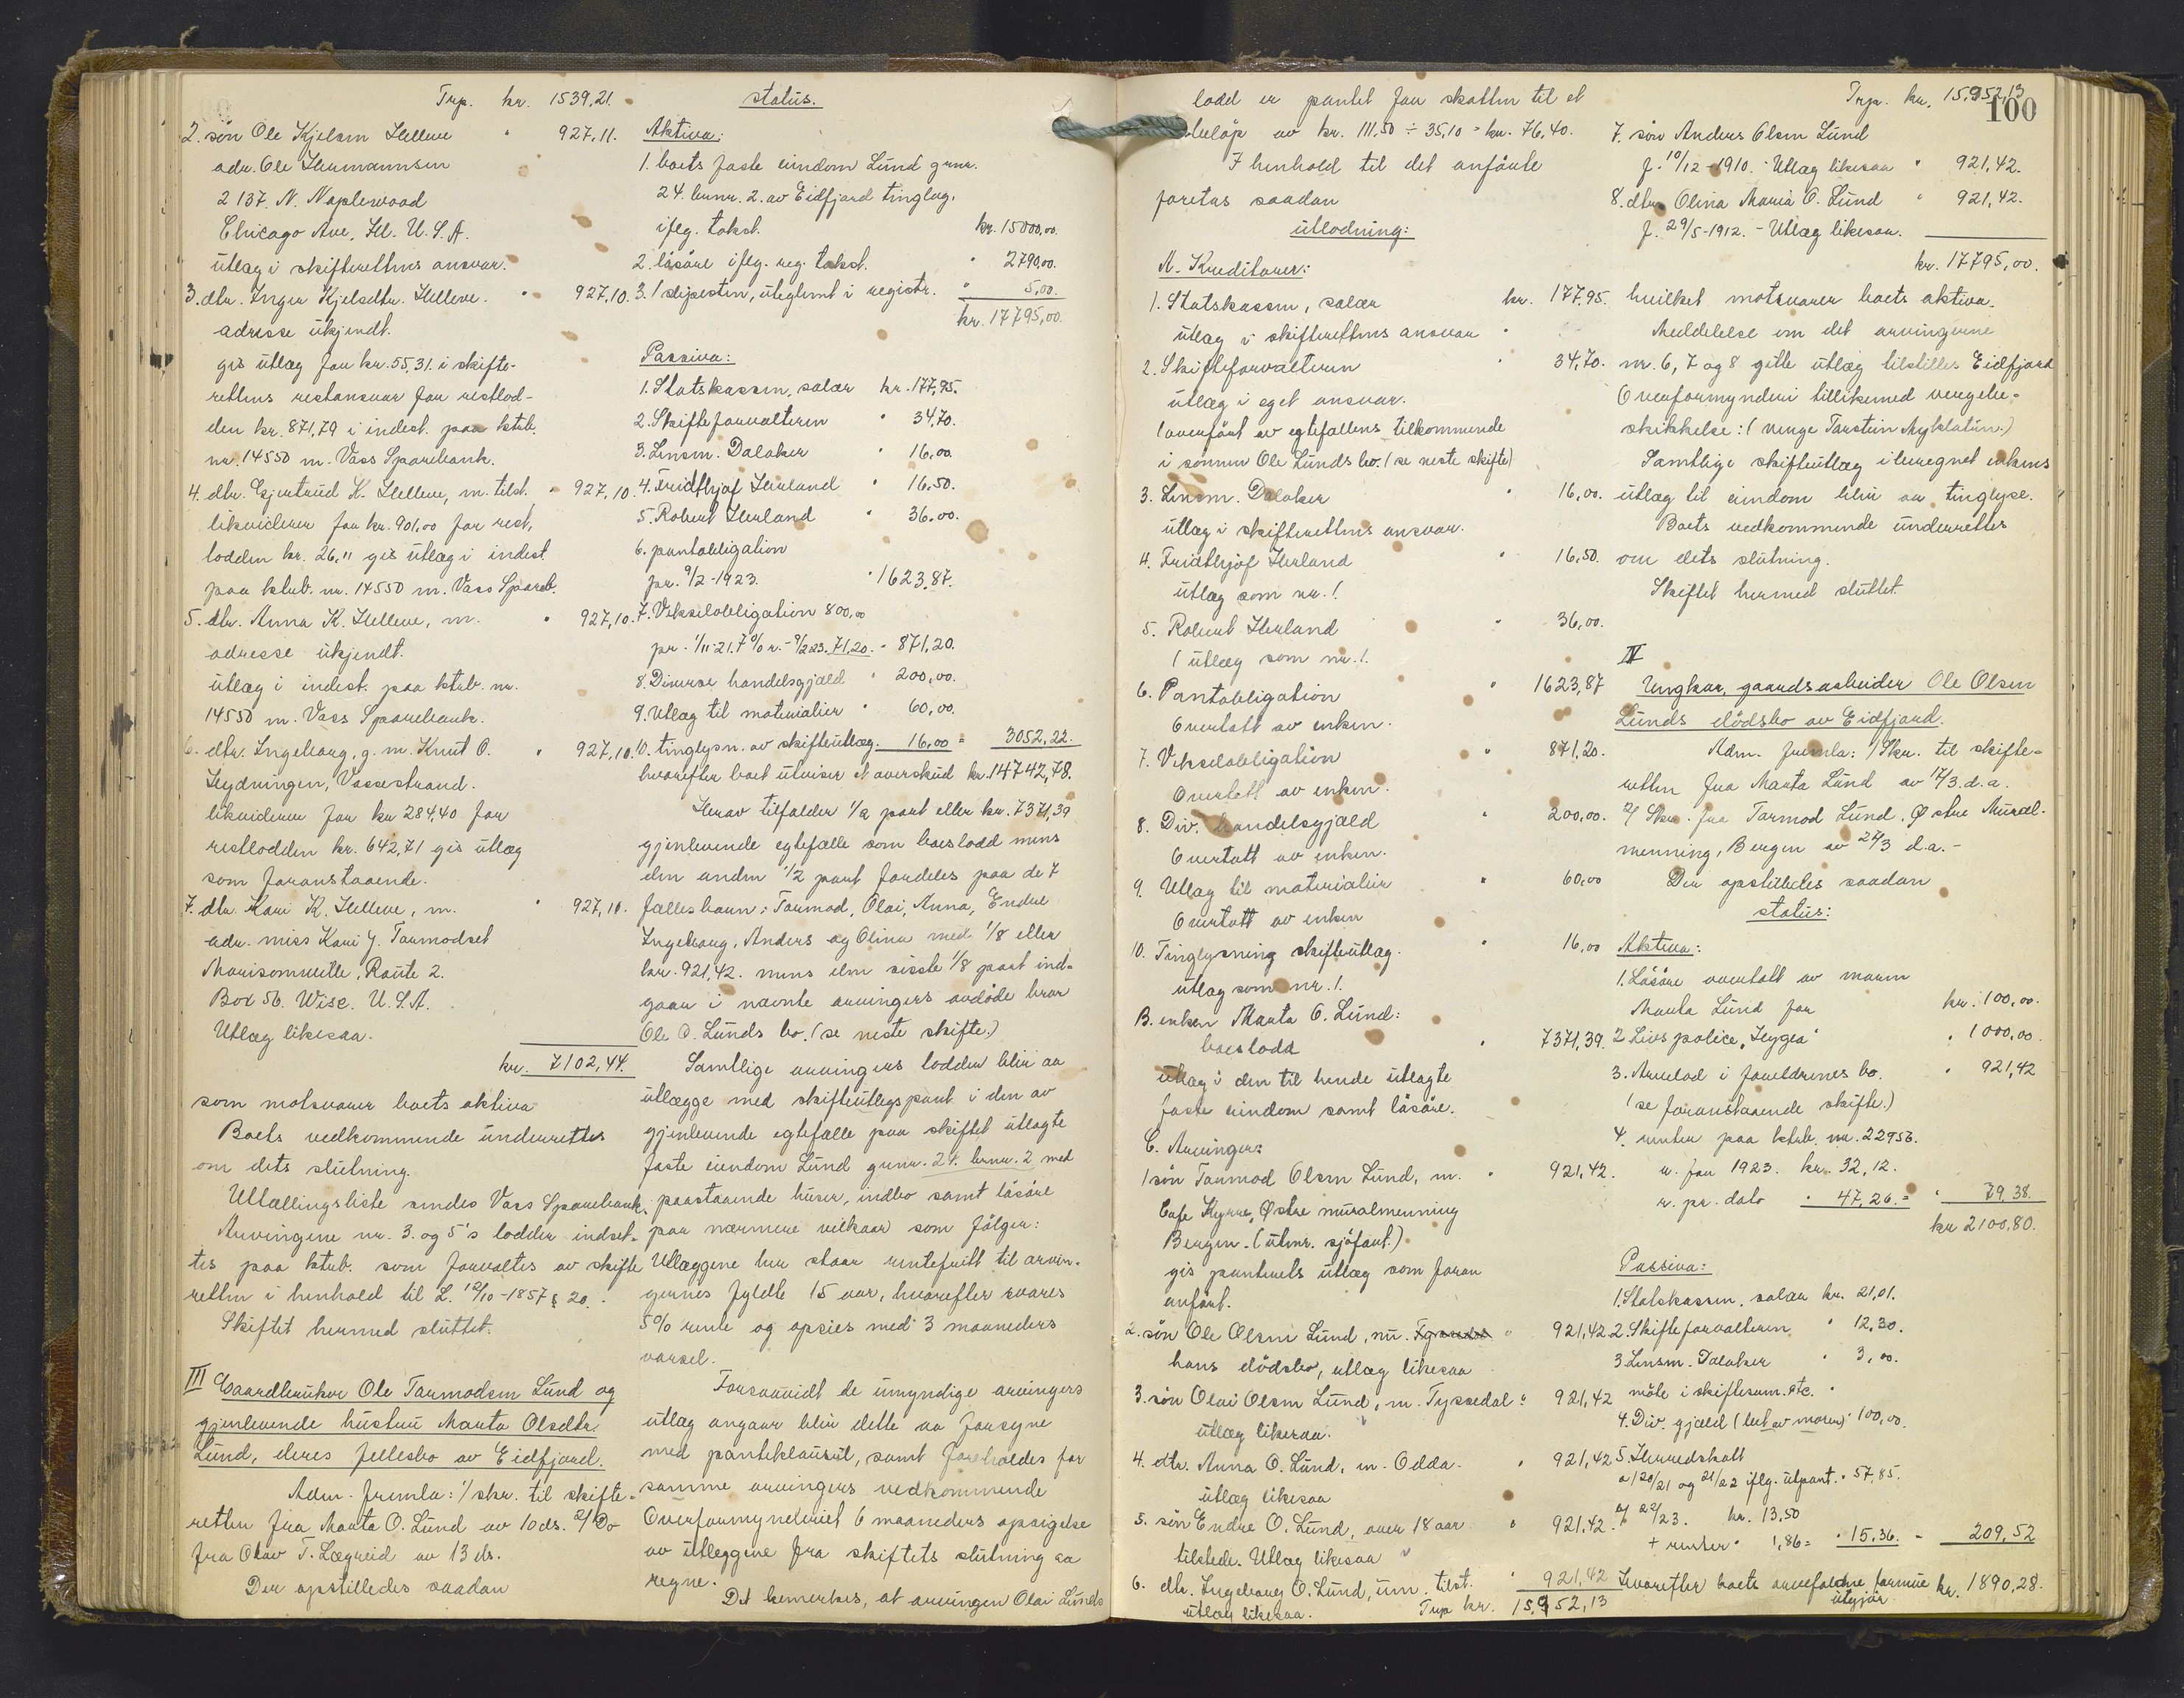 Trp. kr. 1539,21.
2. søn Ole Kjelsen Helleve " 927,11.
adr. Ole Hermannsen
2137. N. Maplewood
Chicago Ave, Ill. U.S.A.
utlæg i skifterettens ansvar.
3. dtr. Inger Kjelsdtr. Helleve. " 927,10.
adresse ukjendt.
gis utlæg for kr. 55,31. i skifte-
rettens restansvar for restlod-
den kr. 871,79 i indest. paa ktrb.
nr. 14550 m. Vass Sparebank.
4. dtr. Gjertrud K. Helleve, m. tilst. " 927,10.
likviderer for kr. 901,00 for rest.
lodden kr. 26," gis utlæg i indest
paa ktrb. nr. 14550 m. Vass Spareb.
5. dtr. Anna K. Helleve, m. " 927,10.
adresse ukjendt.
utlæg i indest. paa ktrb. nr.
14550 m. Vass Sparebank.
6. dtr. Ingeborg, g. m. Knut O. " 927,10.
Hydningen, Vassestrand.
likviderer for kr 284,40 for
restlodden kr. 642,71 gis utlæg
som foranstaaende.
7. dtr. Kari K. Helleve, m. " 927,10.
adr. miss Kari G. Tarmodset
Morisomville, Route 2.
Box 56. Wisc. U.S.A.
Utlæg likesaa.
kr. 7102,44.
som motsvarer boets aktiva
Boets vedkommende underrettes
om dets slutning.
Utællingsliste sendes Vass Sparebank.
Arvingene nr. 3. og 5's lodder indset-
tes paa ktrb. som forvaltes av skifte
retten i henhold til L. 12/10-1857 § 20.
Skiftet hermed sluttet.
III Gaardbruker Ole Tarmodsen Lund og
gjenlevende hustru Marta Olsdtr.
Lund, deres fellesbo av Eidfjord.
Adm. fremla: 1/ skr. til skifte-
retten fra Marta O. Lund av 10 ds. 2/ Do
fra Olav T. Lægreid av 13 ds.
Der opstilledes saadan
status.
Aktiva:
1. boets faste eiendom Lund gnr.
24. brnr. 2. av Eidfjord tinglag.
iflg. takst. kr. 15000,00.
2. løsøre iflg. reg. takst. " 2790,00.
3. 1 slipesten, uteglemt i registr. " 5,00.
kr. 17795,00.
Passiva:
1. Statskassen, salær kr. 177,95.
2. Skifteforvalteren " 34,70.
3. Lensm. Dalaker " 16,00
4. Fridthjof Herland " 16,50.
5. Robert Herland " 36,00.
6. pantobligation
pr. 9/2-1923. " 1623,87.
7. Vekselobligation 800,00
pr. 1/11-21. 7% r. - 9/2 23. 71,20. " 871,20.
8. Diverse handelsgjæld " 200,00.
9. Utlæg til materialier " 60,00.
10. tinglysn. av skifteutlæg. 16,00 = 3052,22.
hvorefter boet utviser et overskud kr. 14742,78.
Herav tilfalder 1/2 part eller kr. 7371,39
gjenlevende egtefælle som boeslodd mens
den anden 1/2 part fordeles paa de 7
fællesbarn: Tarmod, Olai, Anna, Endre
Ingeborg, Anders og Olina med 1/8 eller
kr. 921,42. mens den sisste 1/8 part ind-
gaar i nævnte arvingers avdøde bror
Ole O. Lunds bo. (se neste skifte.)
Samtlige arvingers lodder blir aa
utlægge med skifteutlegspant i den av
gjenlevende egtefælle paa skiftet utlagte
faste eiendom Lund gnr. 24. brnr. 2 med
paastaaende huser, indbo samt løsøre
paa nærmere vilkaar som følger:
Utlæggene her staar rentefritt til arvin-
gernes fyldte 15 aar, hvorefter svares
5% rente og opsies med 3 maaneders
varsel.
Forsaavidt de umyndige arvingers
utlæg angaar blir dette aa forsyne
med panteklausul, samt forbeholdes for
samme arvingers vedkommende
Overformynderiet 6 maaneders opsigelse
av utleggene fra skiftets slutning aa
regne.
Det bemerkes, at arvingen Olai Lunds
100
lodd er pantet for skatten til et
beløp av kr. 111,50 ÷ 35,10 = kr. 76,40.
I henhold til det anførte
foretas saadan
utlodning:
A. Kreditorer:
1. Statskassen, salær kr. 177,95.
utlæg i skifterettens ansvar "
2. Skifteforvalteren " 34,70.
utlæg i eget ansvar.
(overført av egtefællens tilkommende
i sønnen Ole Lunds bo. (se neste skifte)
3. Lensm. Dalaker " 16,00.
utlæg i skifterettens ansvar.
4. Fridthjof Herland " 16,50.
utlæg som nr. 1.
5. Robert Herland " 36,00.
( utlæg som nr. 1.
6. Pantobligation " 1623,87
Overtatt av enken.
7. Vekselobligation " 871,20.
Overtatt av enken.
8. Div. handelsgjæld " 200,00.
Overtatt av enken.
9. Utlæg til materialier " 60,00
Overtatt av enken
10. Tinglysning skifteutlæg. " 16,00
utlæg som nr. 1.
B. enken Marta O. Lund:
boeslodd " 7371,39.
utlæg i den til hende utlagte
faste eiendom samt løsøre.
C. Arvinger:
1 søn Tarmod Olsen Lund, m. " 921,42.
Cafe Kyrre, Østre muralmenning
Bergen. (utenr. sjøfart.)
gis panterets utlæg som foran
anført.
2. søn Ole Olsen Lund, nu. " 921,42.
hans dødsbo, utlæg likesaa
3. søn Olai Olsen Lund, m. Tyssedal " 921,42
utlæg likesaa.
4. dtr. Anna O. Lund, m. Odda. " 921,42
utlæg likesaa
5. søn Endre O. Lund, over 18 aar " 921,42.
tilstede. Utlæg likesaa
6. dtr. Ingeborg O. Lund, um. tilst. " 921,42
utlæg likesaa. Trp kr. 15,952,13
Trp. kr. 15,952,13
7. søn Anders Olsen Lund
f. 10/12-1910. Utlæg likesaa " 921,42.
8. dtr. Olina Maria O. Lund " 921,42.
f. 29/5-1912. - Utlæg likesaa.
kr. 17795,00.
hvilket motsvarer boets aktiva.
Meddelelse om det arvingerne
nr. 6, 7 og 8 gitte utlæg tilstilles Eidfjord
Overformynderi tillikemed vergebe-
skikkelse: (verge Torstein Myklatun.)
Samtlige skifteutlæg iberegnet enkens
utlæg til eiendom blir aa tinglyse.
Boets vedkommende underrettes
om dets slutning.
Skiftet hermed sluttet.
IV
Ungkar, gaardsarbeider Ole Olsen
Lunds dødsbo av Eidfjord.
Adm. fremla: 1/ Skr. til skifte-
retten fra Marta Lund av 17/3. d.a.
2/ Skr. fra Tarmod Lund, Østre Mural-
menning, Bergen av 24/3 d.a. -
Der opstilledes saadan
status:
Aktiva:
1. Løsøre overtatt av moren
Marta Lund for kr. 100,00.
2 Livspolice "Hygea" " 1000,00.
3. Arvelod i forældrenes bo. " 921,42
(se foranstaaende skifte.)
4. renter paa ktrb. nr. 22956.
r. for 1923. kr. 32,12.
r. pr. dato " 47,26. = " 79,38.
kr 2100,80.
Passiva:
1. Statskassen, salær kr. 21,01.
2. Skifteforvalteren " 12,30.
3. Lensm. Dalaker " 3,00.
møte i skiftesam. etc.
4. Div. gjæld (bet av moren) " 100,00.
5. Herredskatt
a/ 20/21 og 21/22 iflg. utpant. " 57,85.
b/ 22/23. kr. 13,50
+ renter " 1,86 = " 15,36. = 209,52
hvorefter boets arvefaldne formue utgjør kr. 1890,28.